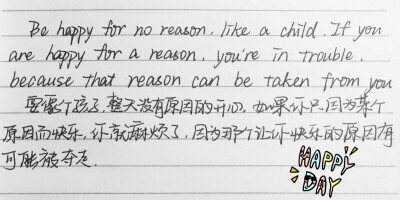 Be happy for no reason, like a child. If you
are happy for a reason, you're in trouble,
because that reason can be taken from you
要像个孩子, 整天没有原因的开心. 如果你只因为某个
原因而快乐, 你就麻烦了, 因为那个让你快乐的原因有
可能被夺走.
HAPPY
DAY